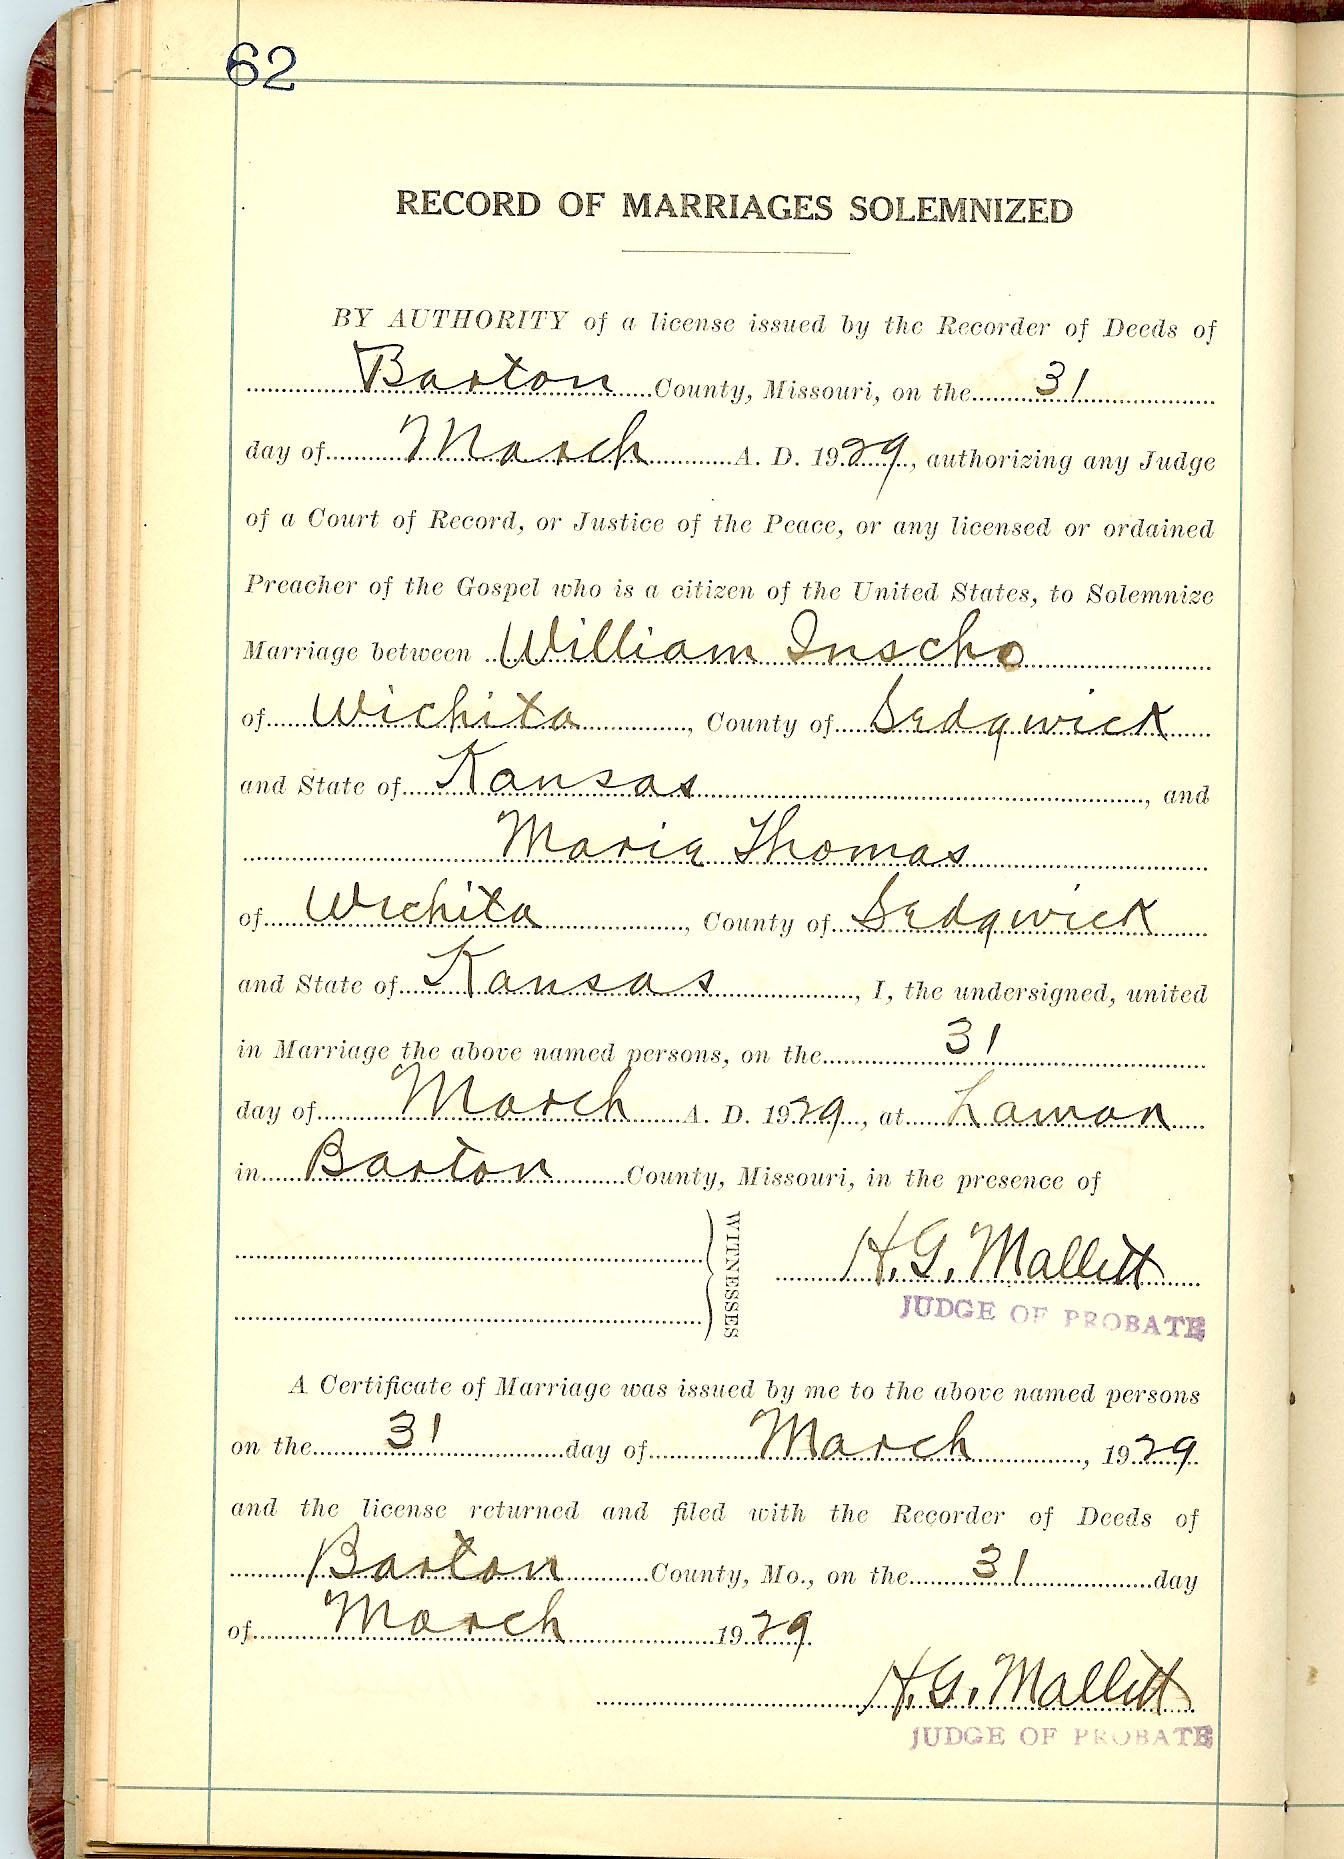 62
RECORD OF MARRIAGES SOLEMNIZED
BY AUTHORITY of a license issued by the Recorder of Deeds of
Barton County, Missouri, on the 31
day of March A. D. 1929, authorizing any Judge
of a Court of Record, or Justice of the Peace, or any licensed or ordained
Preacher of the Gospel who is a citizen of the United States, to Solemnize
Marriage between William Inscho
of Wichita, County of Sedgwick
and State of Kansas, and
Maria Thomas
of Wichita, County of Sedgwick
and State of Kansas, I, the undersigned, united
in Marriage the above named persons, on the 31
day of March A. D. 1929, at Lamar
in Barton County, Missouri, in the presence of
WITNESSES
H. G. Mallett
JUDGE OF PROBATE
A Certificate of Marriage was issued by me to the above named persons
on the 31 day of March, 1929
and the license returned and filed with the Recorder of Deeds of
Barton County, Mo., on the 31 day
of March 1929
H. G. Mallett
JUDGE OF PROBATE